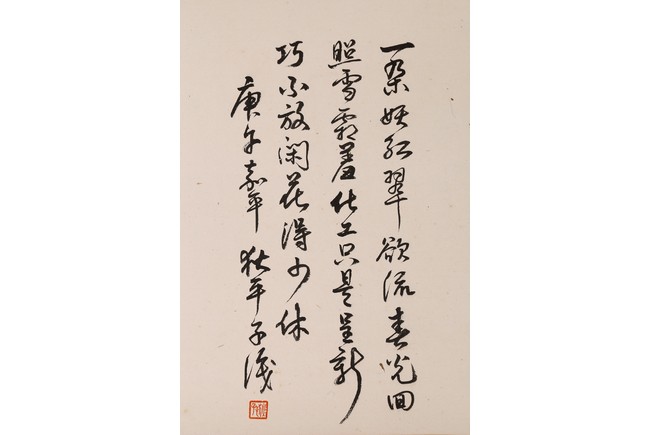 一朵妖紅翠欲流春光回
照雪霜羞化工只是呈新
巧不放閑花得少休
庚午嘉平 狄平子識